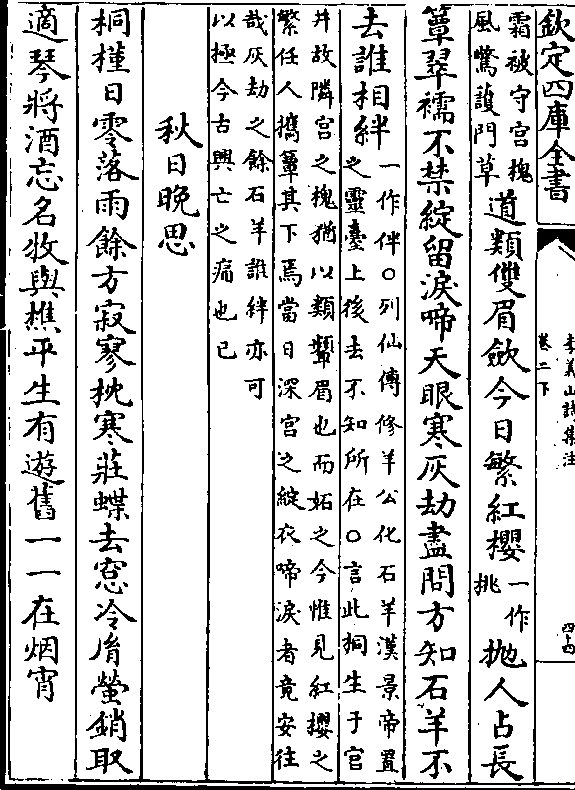 欽定四庫全書
李義山詩集注
卷二下
霜被守宮槐
風驚護門草
道類雙眉斂今日繁紅櫻
一作
桃
拋人占長
簟翠襦不禁綻留淚啼天眼寒灰劫盡問方知石羊不
去誰相絆
一作伴○列仙傳修羊公化石羊漢景帝置
之靈臺上後去不知所在○言此桐生于宮
井故隣宮之槐猶以類顰眉也而妬之今惟見紅櫻之
繁任人攜簟其下焉當日深宮之綻衣啼淚者竟安往
哉灰劫之餘石羊誰絆亦可
以極今古興亡之痛也已
秋日晚思
桐槿日零落雨餘方寂寥枕寒莊蝶去窓冷胤螢銷取
適琴將酒忘名牧與樵平生有遊舊一一在烟宵